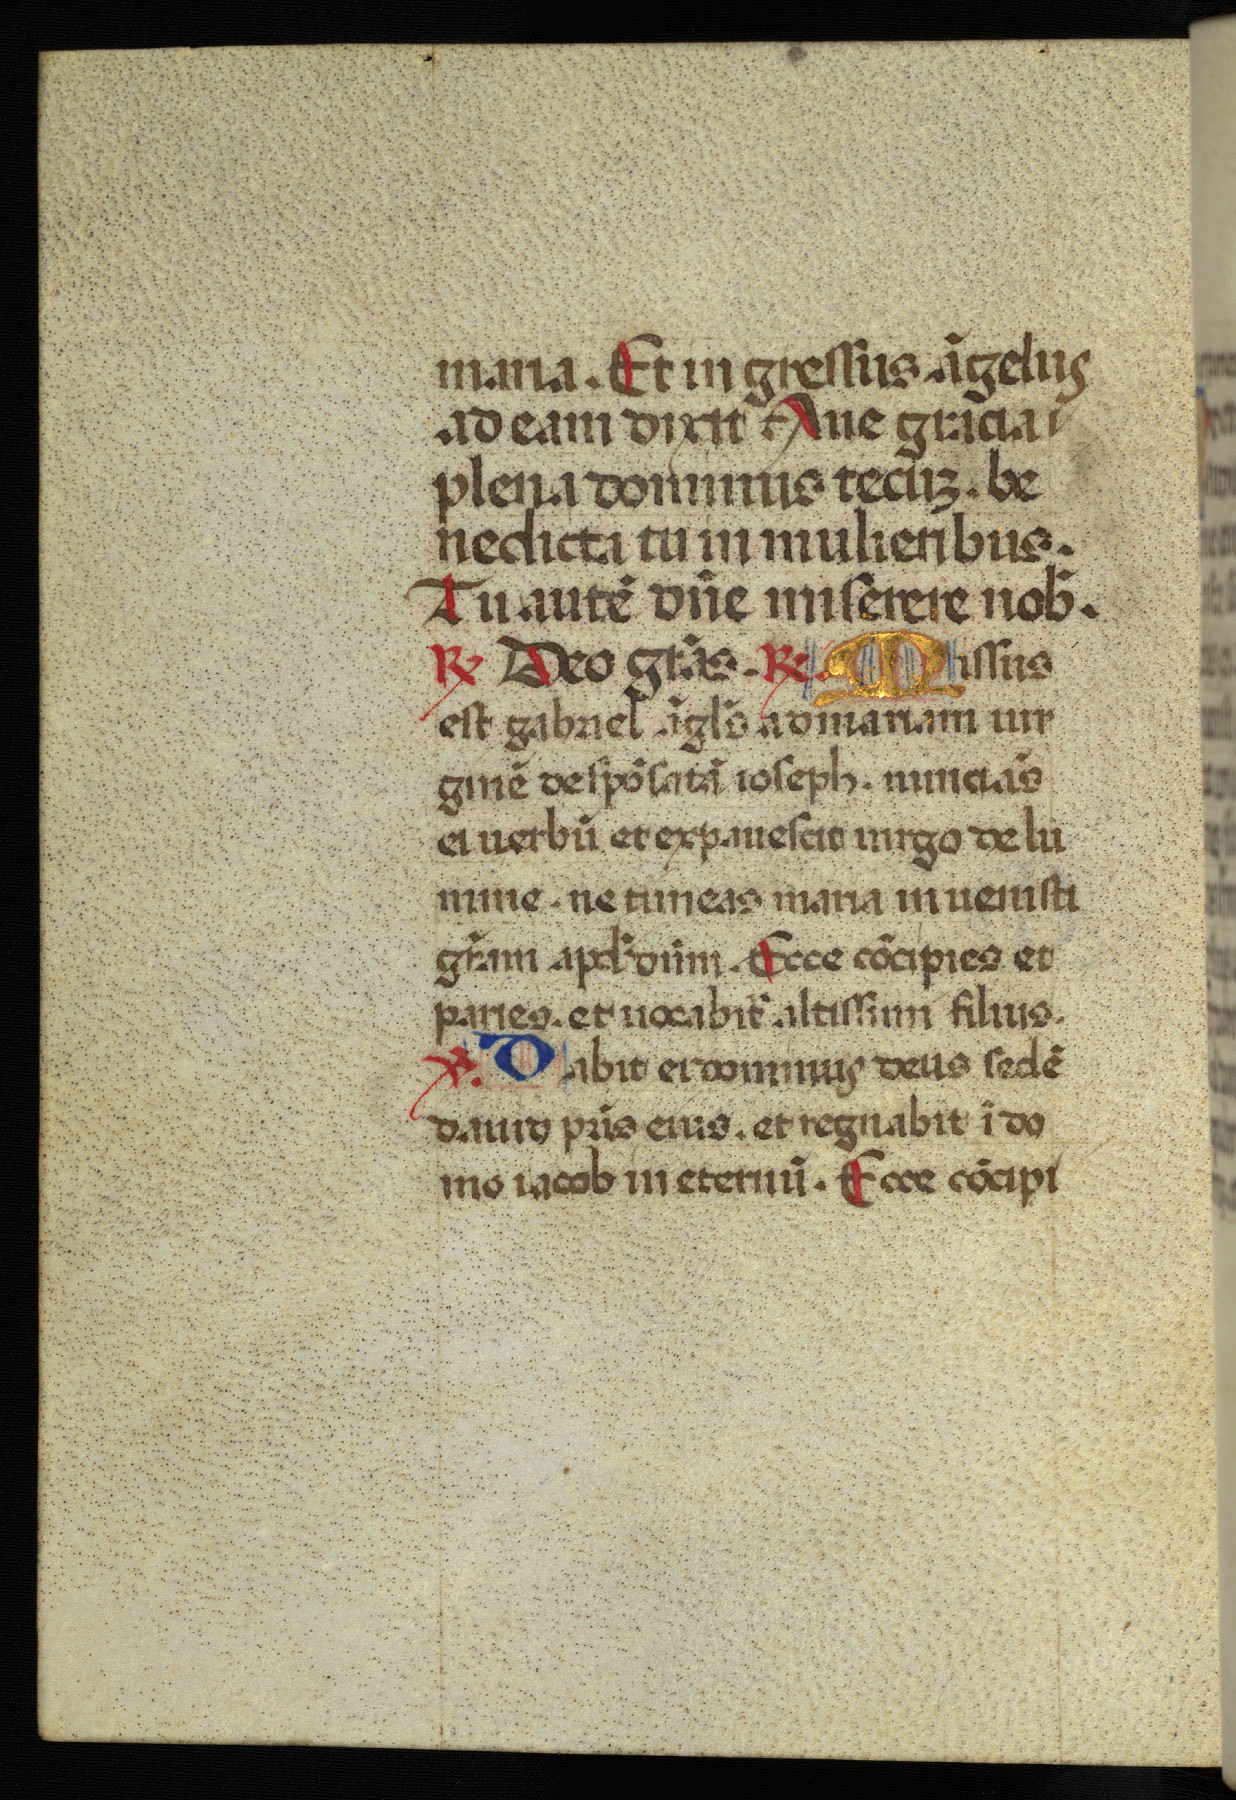 maria. Et in gressus āgelus
ad eam dixit Aue gracia
plena dominus tecūȝ. be
nedicta tu in mulieribus.
Tu autē dn̄e miserere nob̄.
℞ Deo gr̄as. ℞. Missus
est gabriel āgl̄s ad mariam uir
ginē despōsatā ioseph. nunciās
ei uerbū et expauescit uirgo de lu
mine. ne timeas maria in uenisti
gr̄am apd̄ dn̄m. Ecce cōcipies et
paries. et uocabit̄ altissimi filius.
℣. Dabit ei dominus deus sedē
dauid pr̄is eius. et regnabit ī do
mo iacob in eternū. Ecce cōcipi